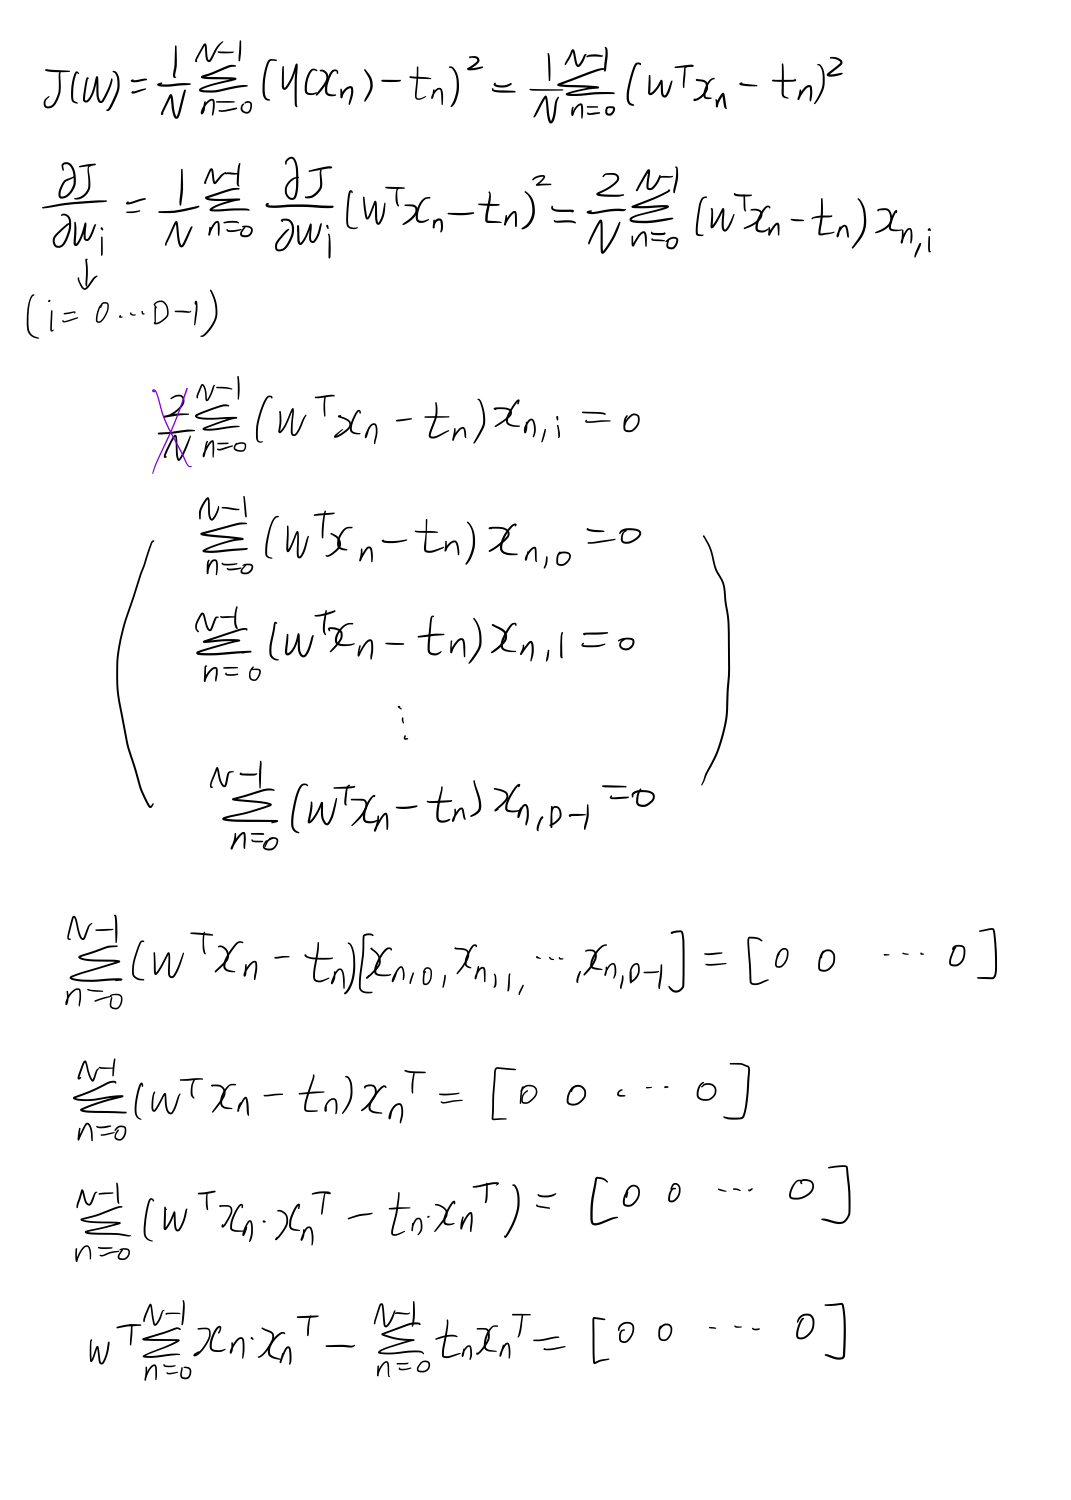 J(w) = 1/N ∑_{n=0}^{N-1} (y(x_n) - t_n)² = 1/N ∑_{n=0}^{N-1} (w^T x_n - t_n)²
∂J/∂w_i = 1/N ∑_{n=0}^{N-1} ∂J/∂w_i (w^T x_n - t_n)² = 2/N ∑_{n=0}^{N-1} (w^T x_n - t_n) x_{n,i}
↓
(i = 0 ... D-1)
2/N ∑_{n=0}^{N-1} (w^T x_n - t_n) x_{n,i} = 0
∑_{n=0}^{N-1} (w^T x_n - t_n) x_{n,0} = 0
∑_{n=0}^{N-1} (w^T x_n - t_n) x_{n,1} = 0
⋮
∑_{n=0}^{N-1} (w^T x_n - t_n) x_{n,D-1} = 0
∑_{n=0}^{N-1} (w^T x_n - t_n) [x_{n,0}, x_{n,1}, ..., x_{n,D-1}] = [0 0 ... 0]
∑_{n=0}^{N-1} (w^T x_n - t_n) x_n^T = [0 0 ... 0]
∑_{n=0}^{N-1} (w^T x_n · x_n^T - t_n · x_n^T) = [0 0 ... 0]
w^T ∑_{n=0}^{N-1} x_n · x_n^T - ∑_{n=0}^{N-1} t_n x_n^T = [0 0 ... 0]